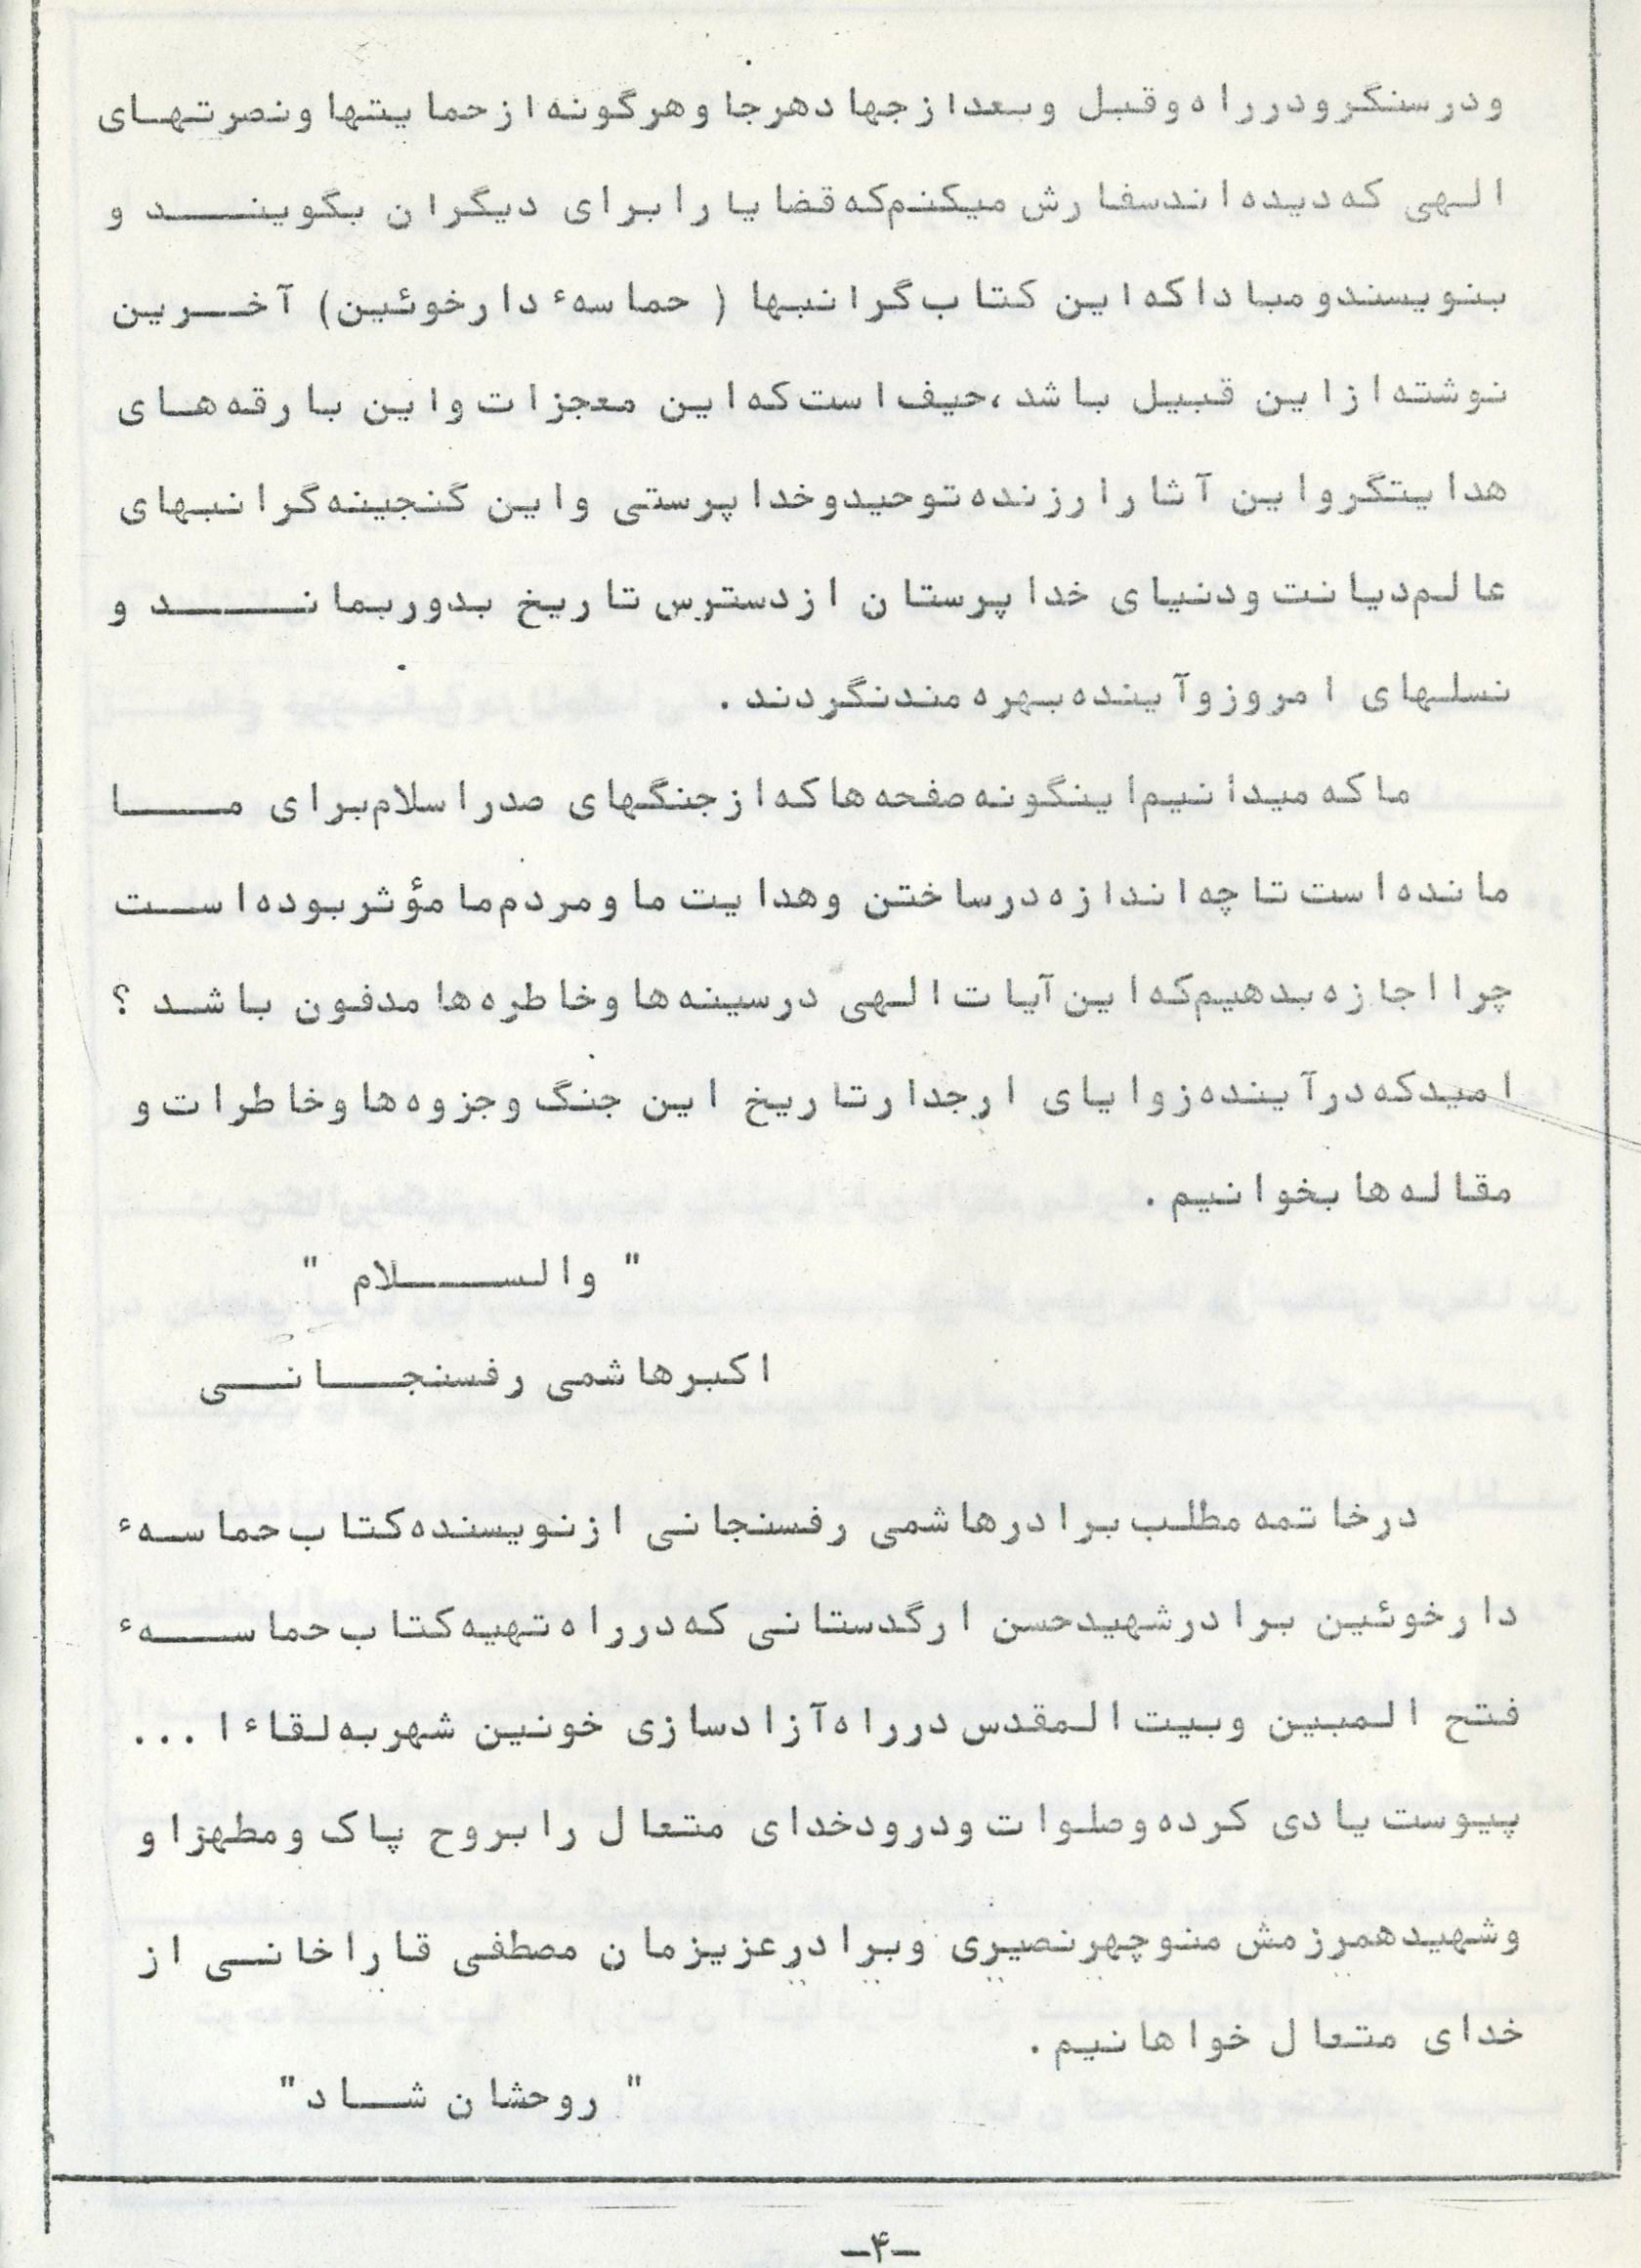 ودرسنگرودرراه وقبل وبعدازجهادهرجا وهرگونه ازحمایتها ونصرتهای
الهی که دیده اندسفارش میکنم که قضایا رابرای دیگران بگویند و
بنویسندومباداکه این کتاب گرانبها ( حماسهٔ دارخوئین) آخرین
نوشته ازاین قبیل باشد،حیف است که این معجزات واین بارقه های
هدایتگرواین آثارارزنده توحیدوخداپرستی واین گنجینه گرانبهای
عالم دیانت ودنیای خداپرستان ازدسترس تاریخ بدوربماند و
نسلهای امروزوآینده بهره مندنگردند .
ماکه میدانیم اینگونه صفحه هاکه ازجنگهای صدراسلام برای ما
مانده است تا چه اندازه درساختن وهدایت ما ومردم ما مؤثربوده است
چرااجازه بدهیم که این آیات الهی درسینه ها وخاطره ها مدفون باشد ؟
امیدکه درآینده زوایای ارجدارتاریخ این جنگ وجزوه ها وخاطرات و
مقاله ها بخوانیم .
" والسلام "
اکبرهاشمی رفسنجانی
درخاتمه مطلب برادرهاشمی رفسنجانی ازنویسنده کتاب حماسهٔ
دارخوئین برادرشهیدحسن ارگدستانی که درراه تهیه کتاب حماسهٔ
فتح المبین وبیت المقدس درراه آزادسازی خونین شهربه لقاء ا ...
پیوست یادی کرده وصلوات ودرودخدای متعال رابروح پاک ومطهراو
وشهیدهمرزمش منوچهرنصیری وبرادرعزیزمان مصطفی قاراخانی از
خدای متعال خواهانیم .
" روحشان شاد"
-۴-